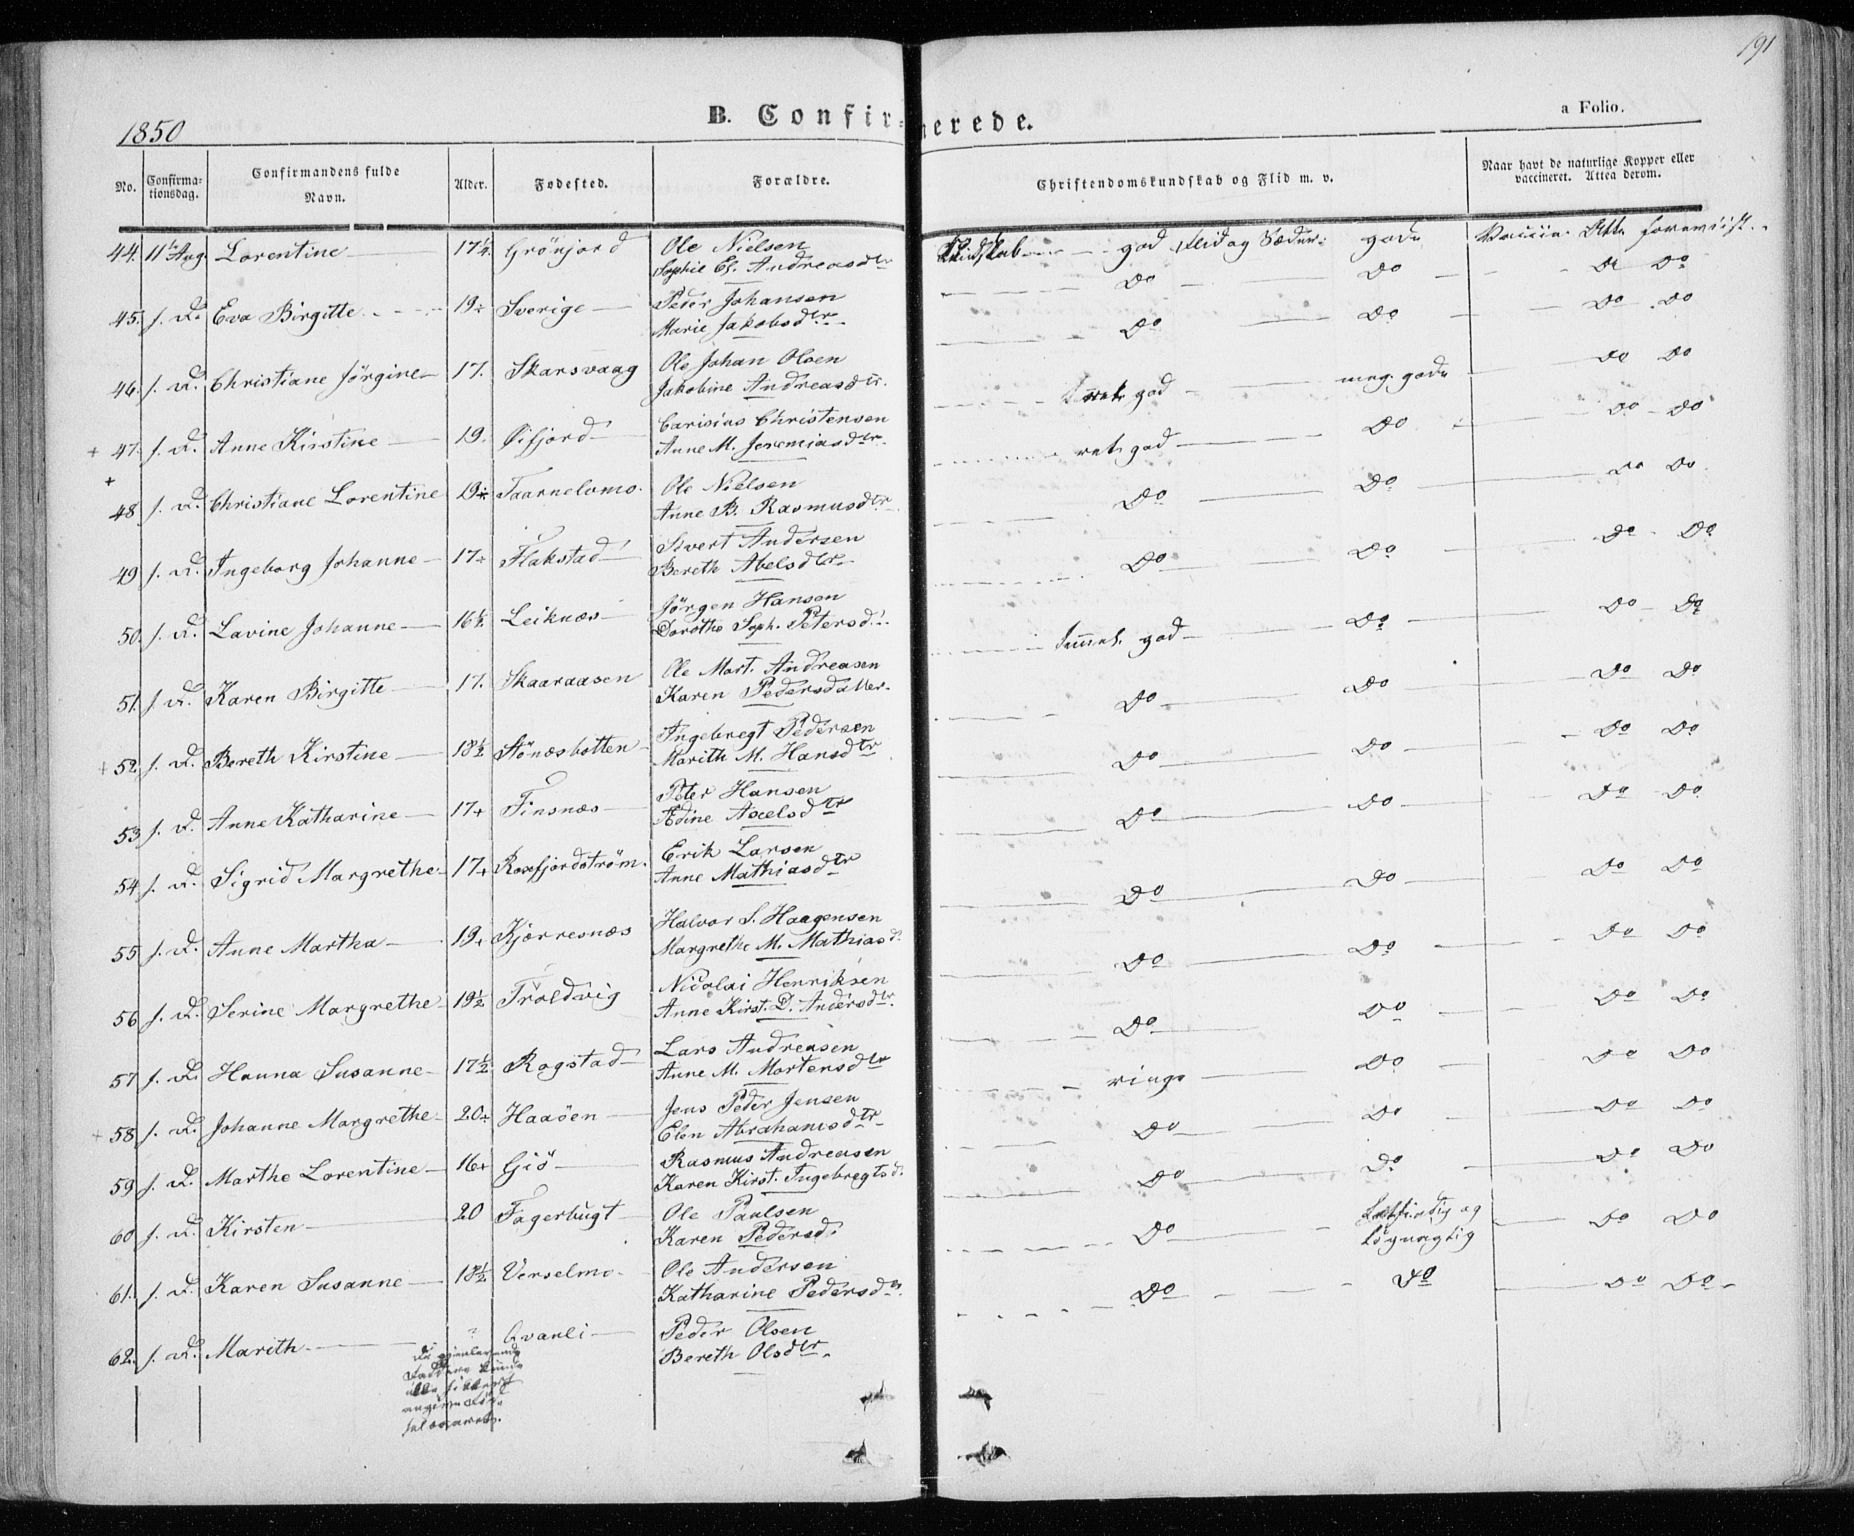 191
1850
B. Confirmerede.
a Folio.
No. Confirmationsdag. Confirmandens fulde Navn. Alder. Fødested. Forældre. Christendomskundskab og Flid m. v. Naar havt de naturlige Kopper eller vaccineret. Attea derom.
44. 11te Aug. Lorentine 17¼ Grönfjord Ole Nielsen Kundskab god Flid og Sæder gode Vaccin. Att. foreviist.
Sophie El. Andreasdtr
45. s. D. Eva Birgitte 19 Sverige Peder Johansen Do Do Do Do
Marie Jakobsdtr
46. s. D. Christiane Jörgine 17. Skarsvaag Ole Johan Olsen Do Do Do Do
Jakobine Andreasdtr.
+ 47. s. D. Anne Kirstine 19. Öifjord Carisius Christensen god meg. gode Do Do
Anne M. Jeremiasdtr.
+ 48 s. D. Christiane Lorentine 19 Taarnelvmo. Ole Nielsen ret god Do Do Do
Anne B. Rasmusdtr
49 s. D. Ingeborg Johanne 17 Flakstad Sivert Andersen Do Do Do Do
Bereth Abelsdtr
50. s. D. Lavine Johanne 16½ Leiknæs Jörgen Hansen Do Do Do Do
Dorothe Soph. Petersd.
51. s. D. Karen Birgitte 17. Skaaraasen Ole Mart. Andreasen god Do Do Do
Karen Pedersdatter
+ 52. s. D. Bereth Kirstine 18½ Stönæsbotten Ingebregt Pedersen Do Do Do Do
Marith M. Hansdtr
53 s. D. Anne Katharine 17 Finsnæs Peter Hansen Do Do Do Do
Ædine Axelsdtr
54 s. D. Sigrid Margrethe 17 Rossfjordström. Erik Larsen Do Do Do Do
Anne Mathiasdtr
55 s. D. Anne Martha 19 Kjerresnæs Halvor S. Haagensen Do Do Do Do
Margrethe M. Mathiasd.
56 s. D. Serine Margrethe 19½ Troldvig Nicolai Henriksen Do Do Do Do
Anne Kirst. D. Andersdtr.
57 s. D. Hanna Susanne 17½ Rogstad Lars Andreasen Do Do Do Do
Anne M. Mortensdtr
+ 58 s. D. Johanne Margrethe 20 Haaöen Jens Peder Jensen ringe Do Do Do
Elen Abrahamsdtr
59 s. D. Marthe Lorentine 16 Giö Rasmus Andreasen Do Do Do Do
Karen Kirst. Ingebregtsd.
60 s. D. Kirsten 20 Fagerbugt Ole Paulsen Do Do Do Do
Karen Pedersd.
61. s. D. Karen Susanne 18½ Verselmo Ole Andersen Do Letsindig og Do Do
Katharine Pedersd. Lögnagtig
62. s. D. Marith ? Qvanli Peder Olsen Do Do Do Do
Bereth Olsdtr.